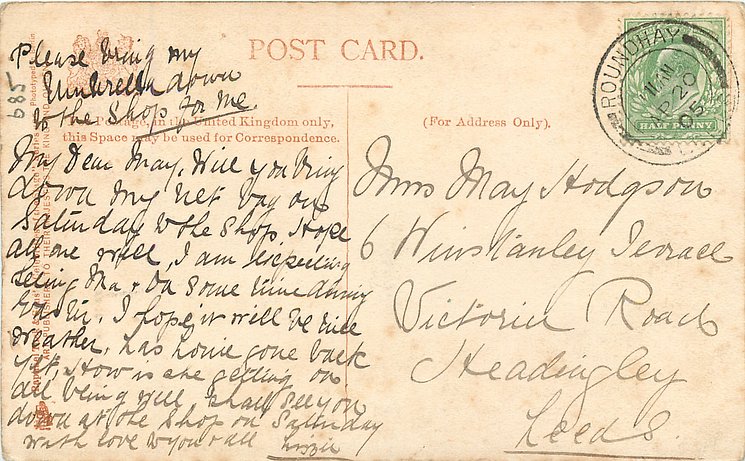 Please bring my
Umbrella down
to the Shop for me.
POST CARD.
685
For Postage, in the United Kingdom only,
this Space may be used for Correspondence.
(For Address Only).
ROUNDHAY
11 AM
AP 20
05
HALF PENNY
My Dear May, Will you bring
down my net bag on
Saturday to the Shop, Hope
all are well, I am expecting
seeing Ma & Da some time during
Easter, I hope it will be nice
weather, has gone back
yet, How is she getting on
all being well, shall see you
down at the Shop on Saturday
with love to you & all Lizzie
Miss May Hodgson
6 Winstanley Terrace
Victoria Road
Headingley
Leeds.